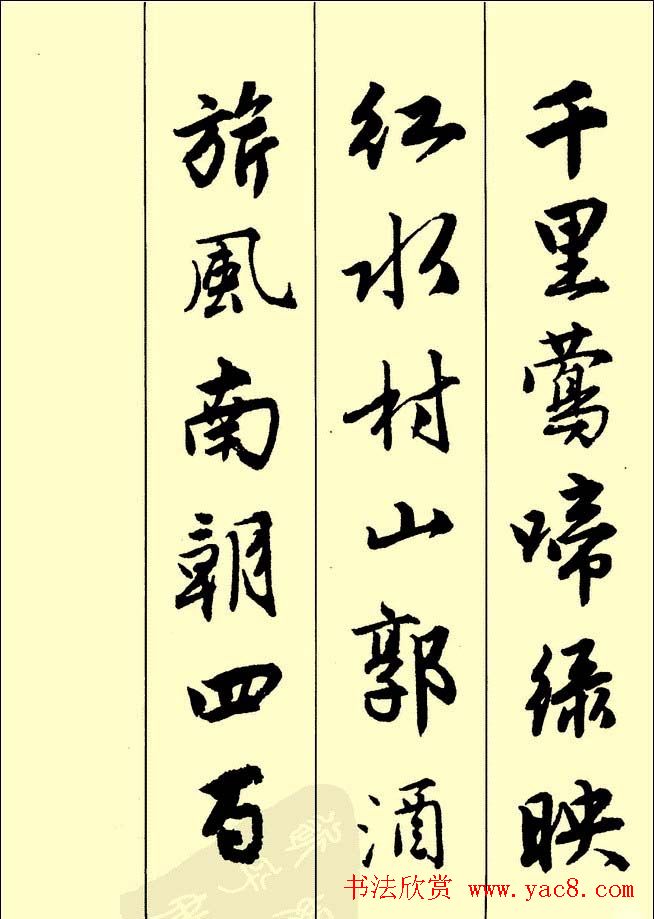 千里莺啼绿映
红水村山郭酒
旂風南朝四百
书法欣赏 www.yac8.com